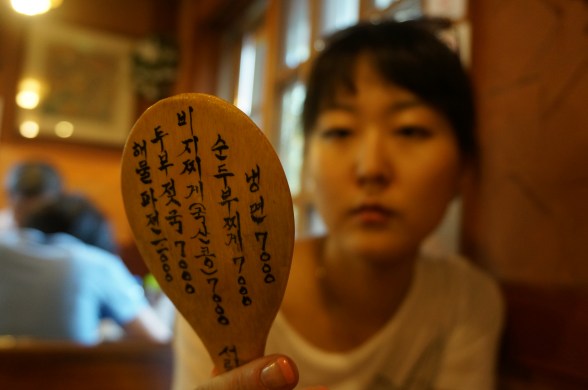 냉면 7000
순두부찌게 7000
비지찌게(국산콩) 7000
두부젓국 7000
해물파전